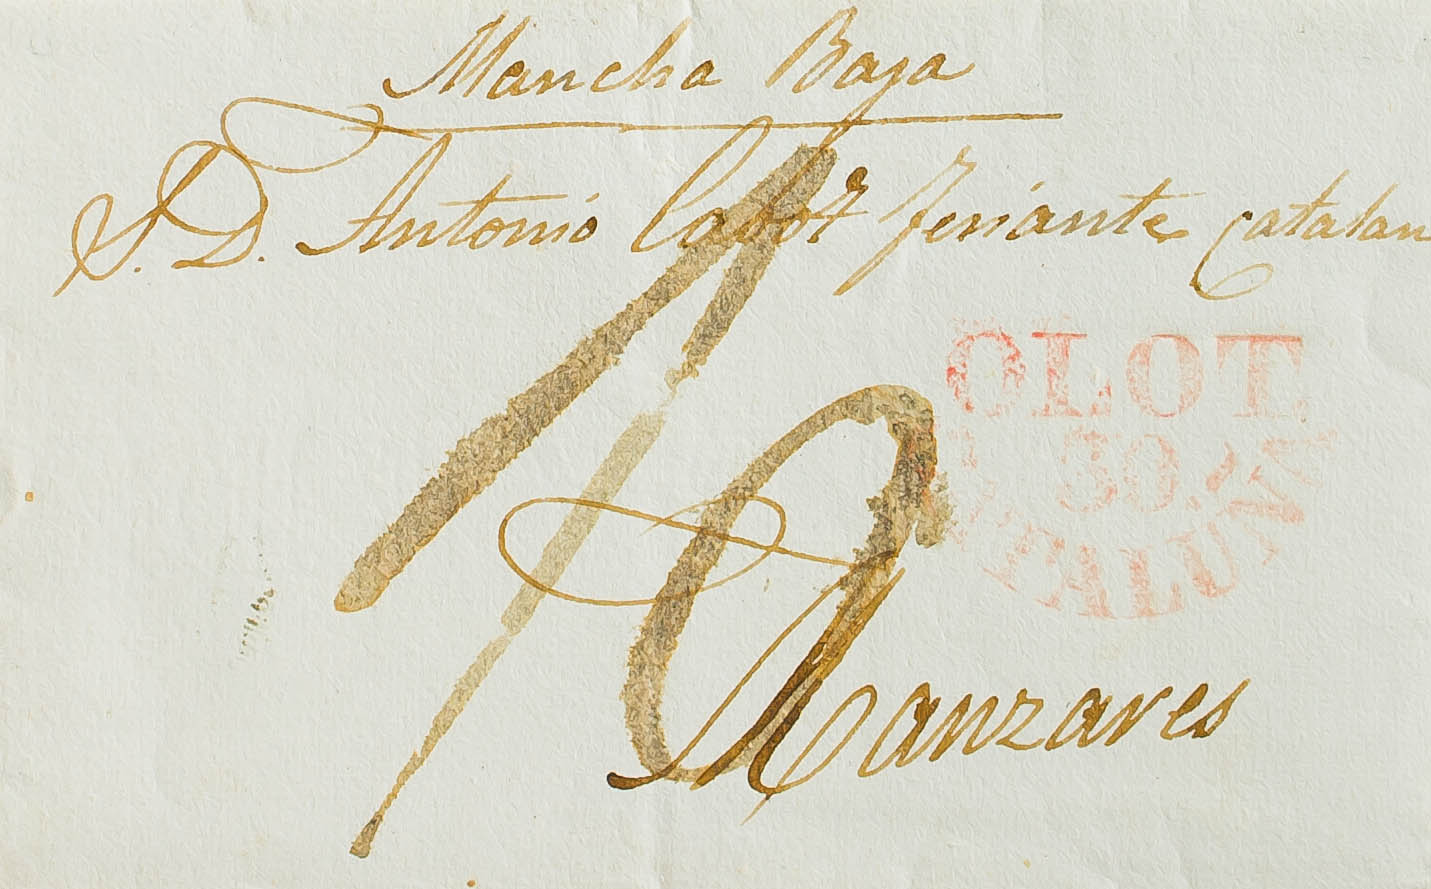 Mancha Baja
S. D. Antonio Cabot feriante Catalan
10
OLOT.
30.
CATALUÑA
Manzares